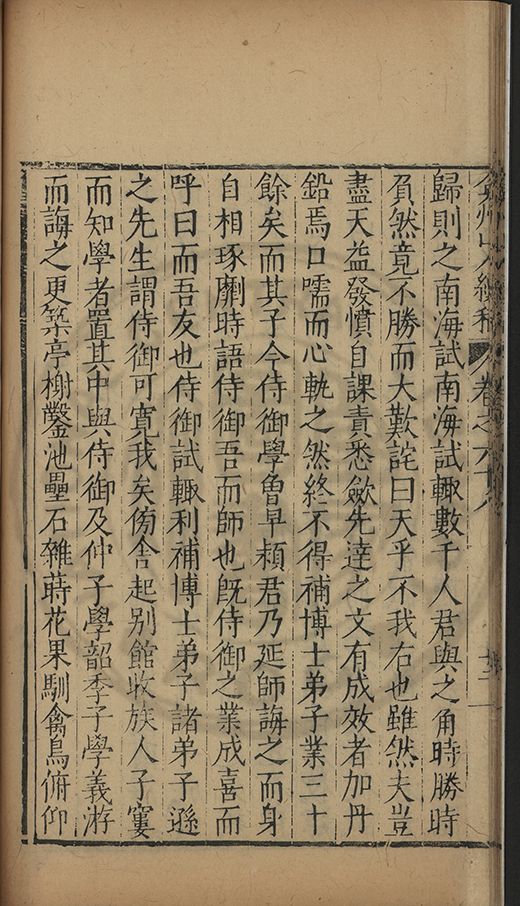 弇州山人續稿 卷之六十八
歸則之南海試南海試輒數千人君與之角時勝時
負然竟不勝而大歎詫曰天乎不我右也雖然夫豈
盡天益發憤自課責悉斂先達之文有成效者加丹
鉛焉口嚅而心軌之然終不得補博士弟子業三十
餘矣而其子今侍御學魯早頴君乃延師誨之而身
自相琢劘時語侍御吾而師也旣侍御之業成喜而
呼曰而吾友也侍御試輒利補博士弟子諸弟子遜
之先生謂侍御可寬我矣傍舍起别館收族人子寠
而知學者置其中與侍御及仲子學韶季子學義游
而誨之更築亭榭鑿池壘石雜蒔花果馴禽鳥俯仰